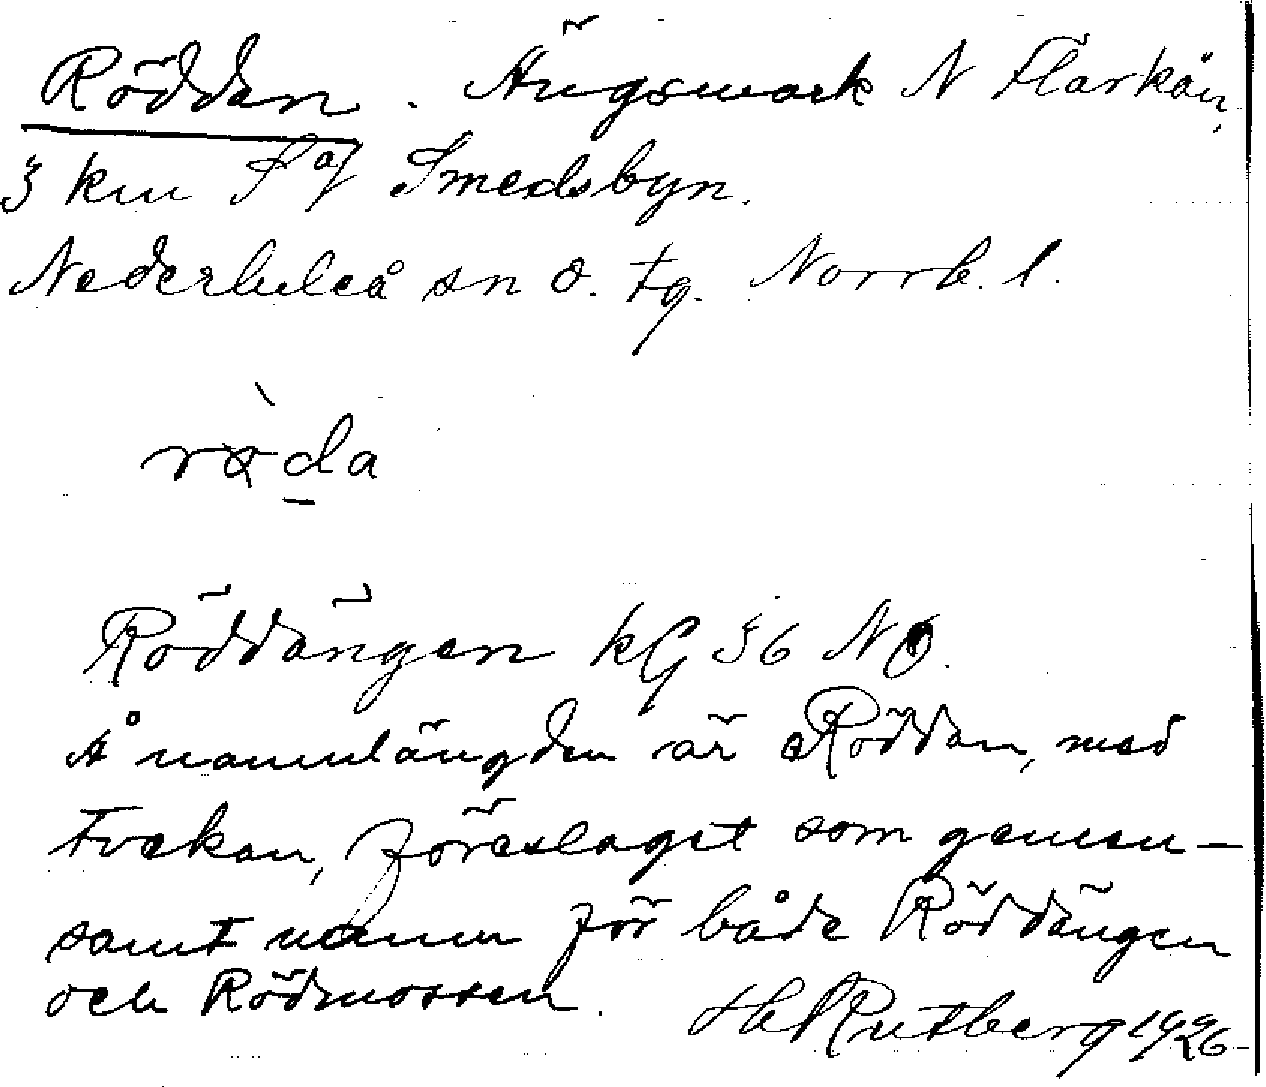 Röddan. Ängsmark N Flarkån,
3 km S af Smedsbyn.
Nederluleå sn ö. tg. Norrb. l.
Röddängen kG 36 NO.
Å namnlängden är Röddan, med
tvekan, föreslaget som gemen-
samt namn för både Röddängen
och Rödmossen. H Rutberg 1926